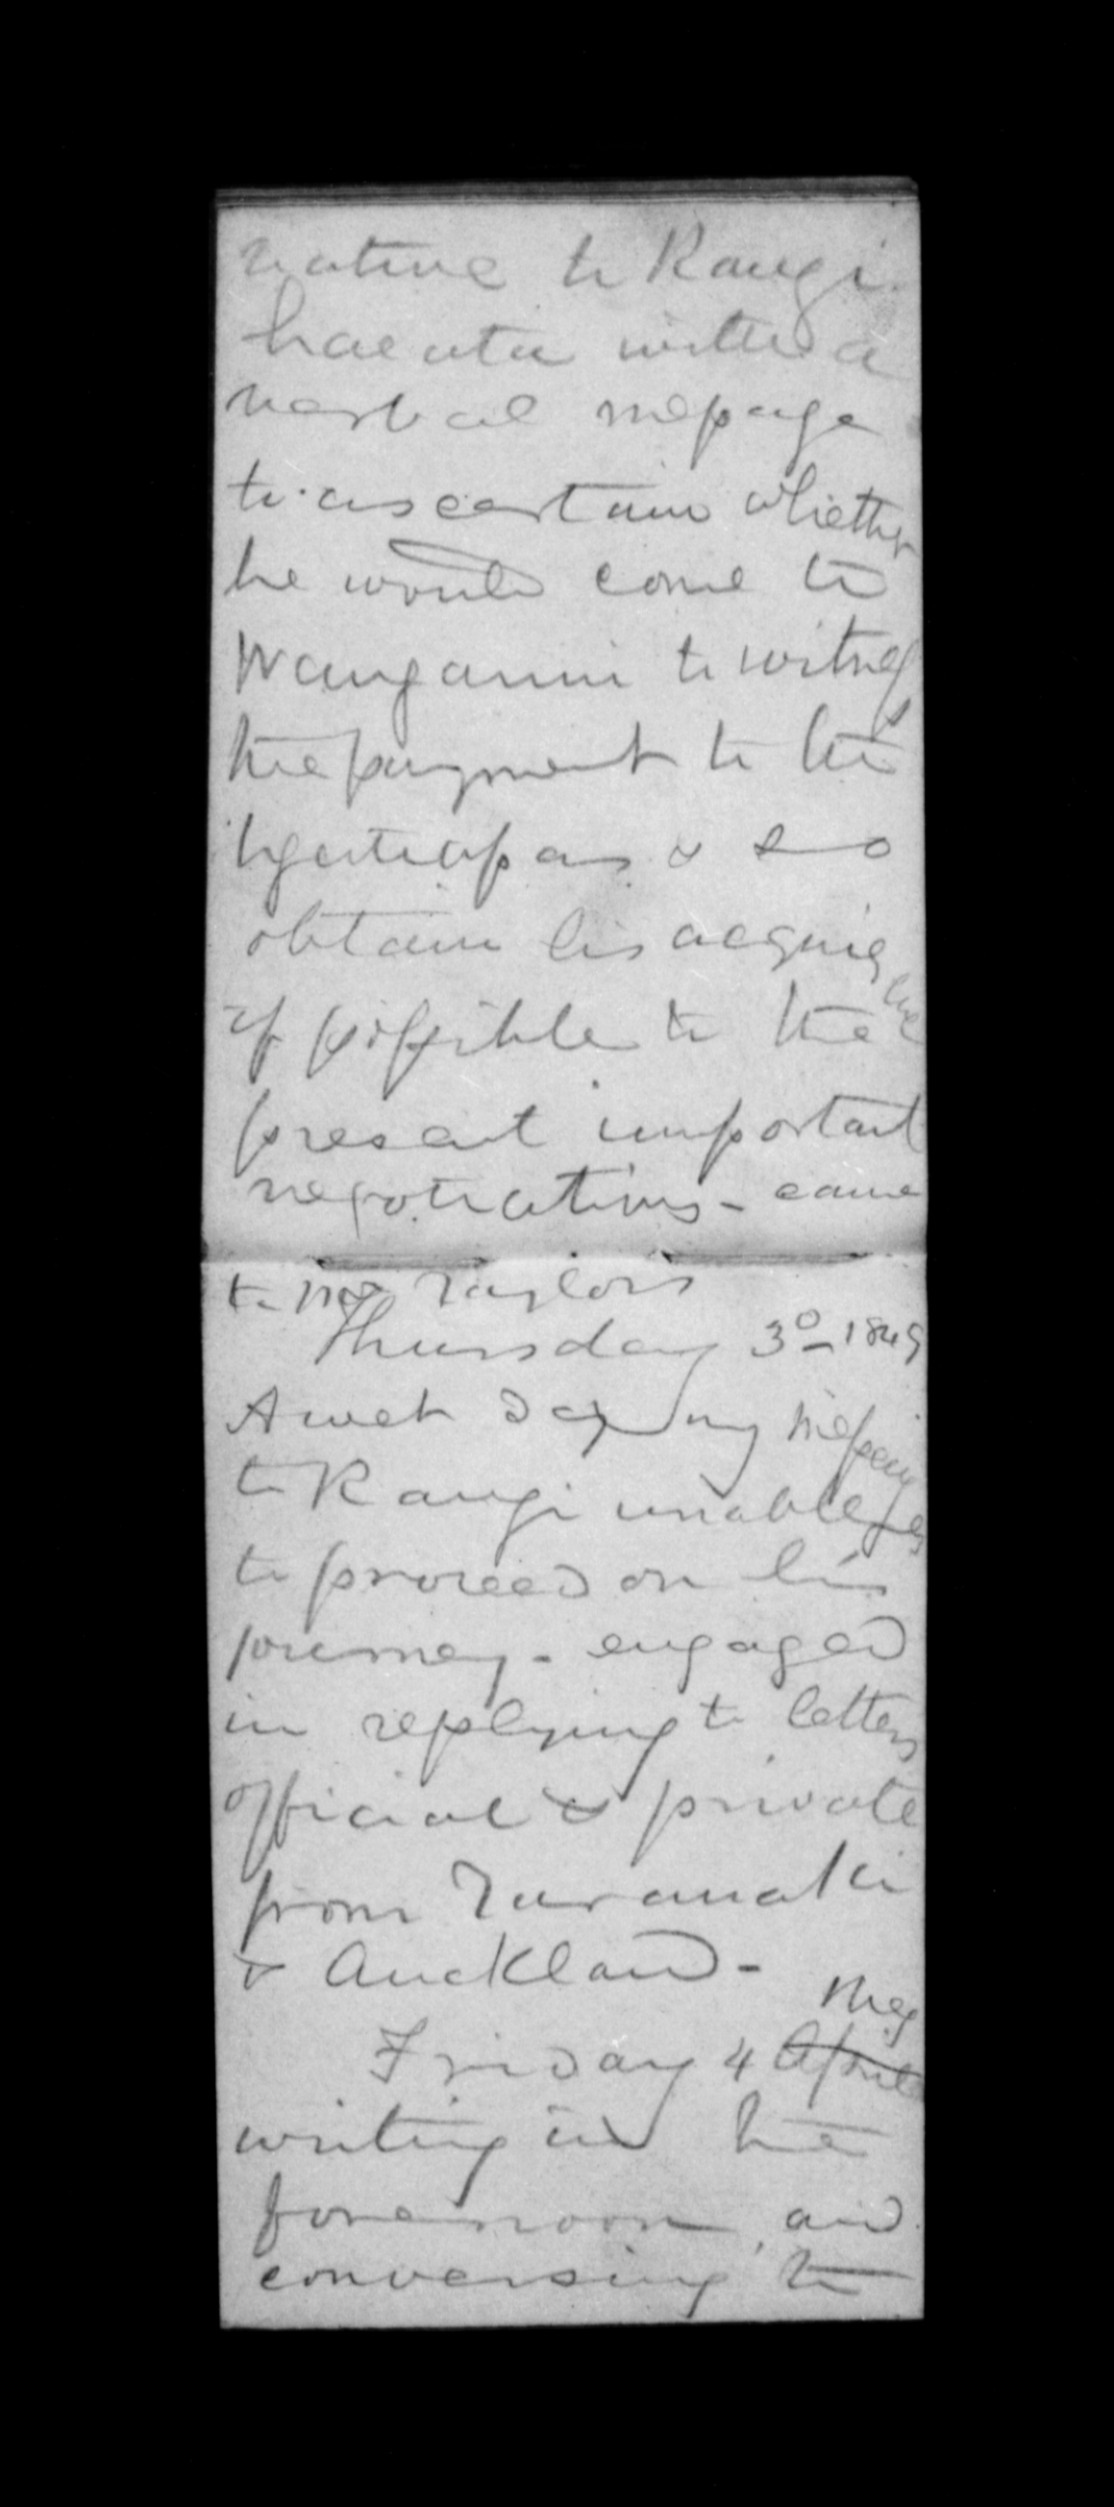 native to Rangi
haeata with a
verbal message
to ascertain whether
he would come to
Wanganui to witness
the payment to the
Ngatiapas & so
obtain his acquies
if possible to the
present important
negotiations - came
to Mr Taylors
Thursday 3d 1849
A wet day my messenger
to Rangi unable
to proceed on his
journey - engaged
in replying to letters
official & private
from Taranaki
& Auckland -
May
Friday 4 April
writing in the
forenoon and
conversing to